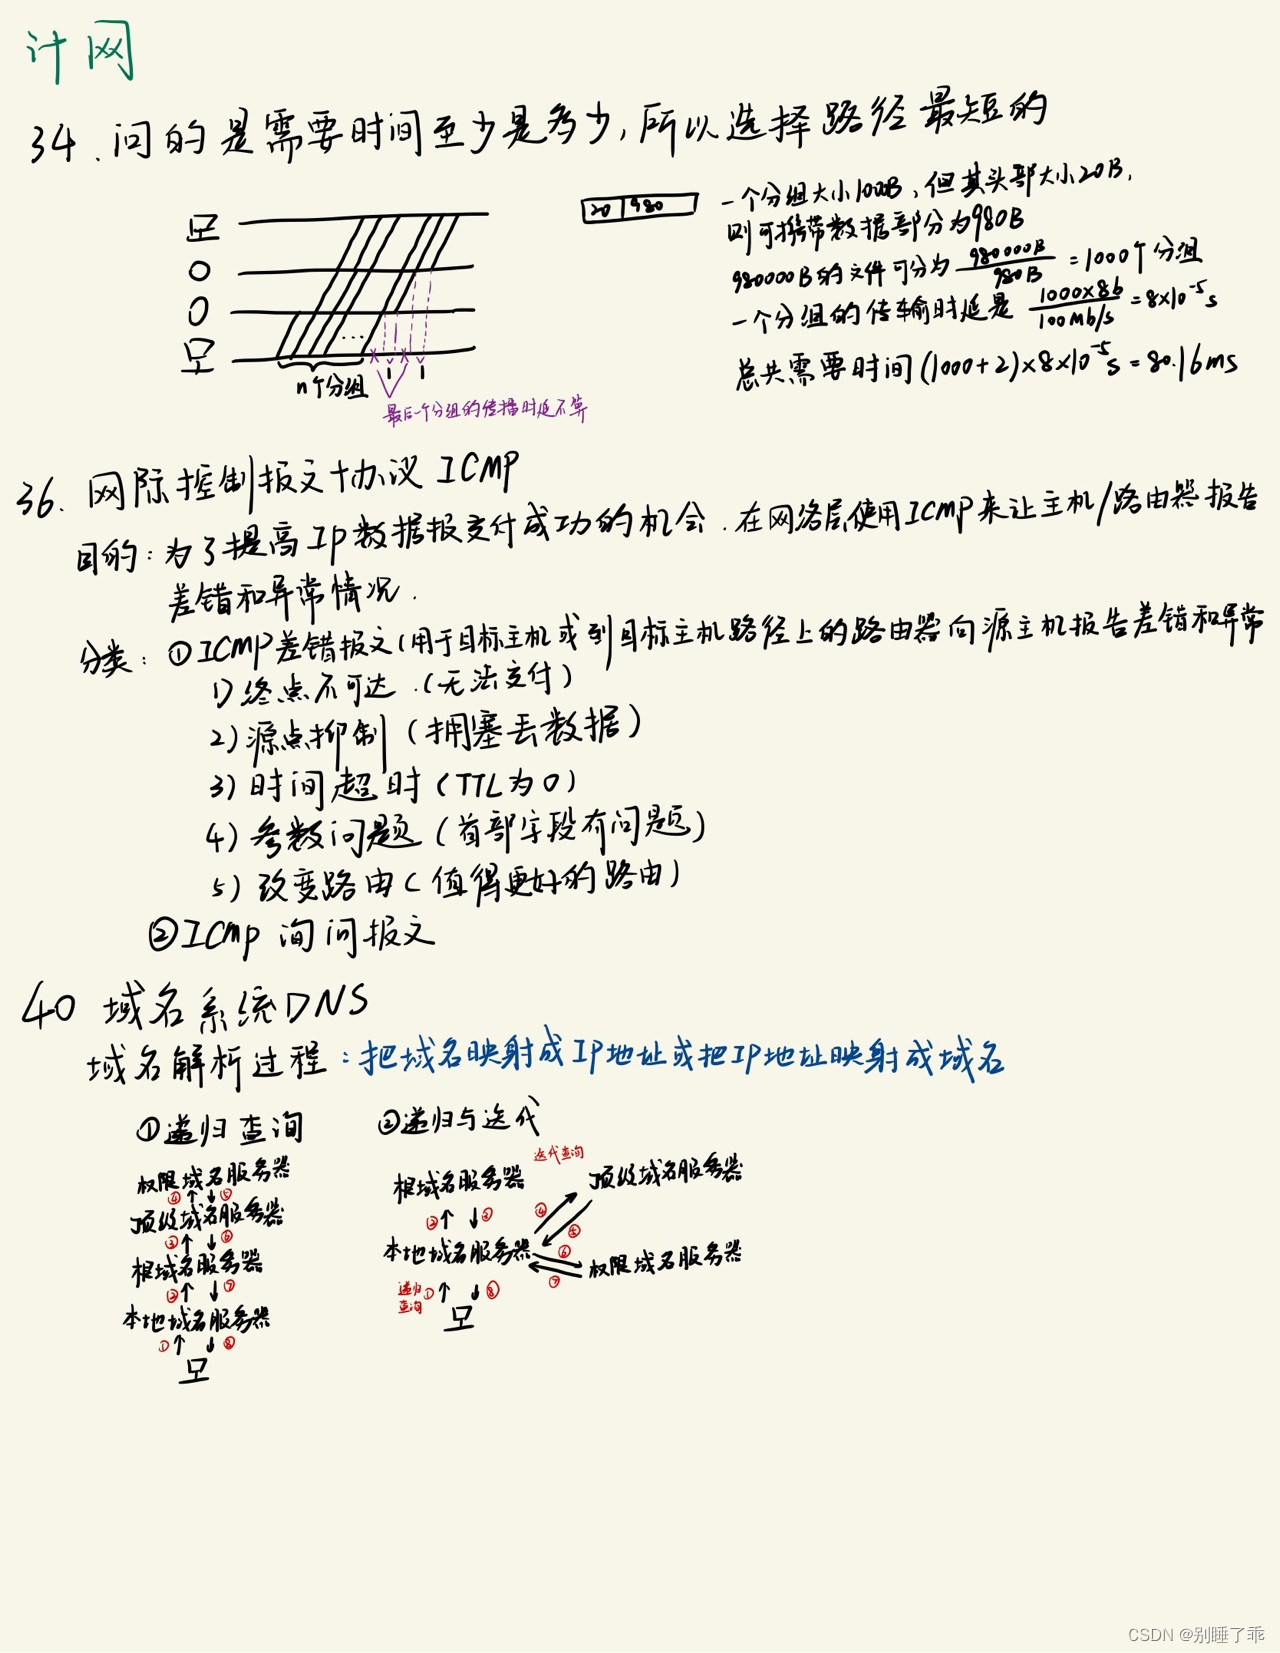 计网
34. 问的是需要时间至少是多少,所以选择路径最短的
20 980
一个分组大小1000B,但其头部大小20B,
则可携带数据部分为980B
980000B的文件可分为 980000B/980B = 1000个分组
一个分组的传输时延是 1000×8b/100Mb/s = 8×10⁻⁵s
总共需要时间(1000+2)×8×10⁻⁵s=80.16ms
...
n个分组 1 1
最后一个分组的传播时延不算
36. 网际控制报文协议ICMP
目的:为了提高IP数据报交付成功的机会.在网络层使用ICMP来让主机/路由器报告
差错和异常情况.
分类:①ICMP差错报文(用于目标主机或到目标主机路径上的路由器向源主机报告差错和异常
1)终点不可达.(无法交付)
2)源点抑制(拥塞丢数据)
3)时间超时(TTL为0)
4)参数问题(首部字段有问题)
5)改变路由(值得更好的路由)
②ICMP 询问报文
40 域名系统DNS
域名解析过程:把域名映射成IP地址或把IP地址映射成域名
①递归查询
权限域名服务器
④ ⑤
顶级域名服务器
③ ⑥
根域名服务器
② ⑦
本地域名服务器
① ⑧
②递归与迭代
迭代查询
根域名服务器 顶级域名服务器
② ③ ④ ⑤
本地域名服务器 ⑥ ⑦ 权限域名服务器
递归
查询 ① ⑧
CSDN @别睡了乖